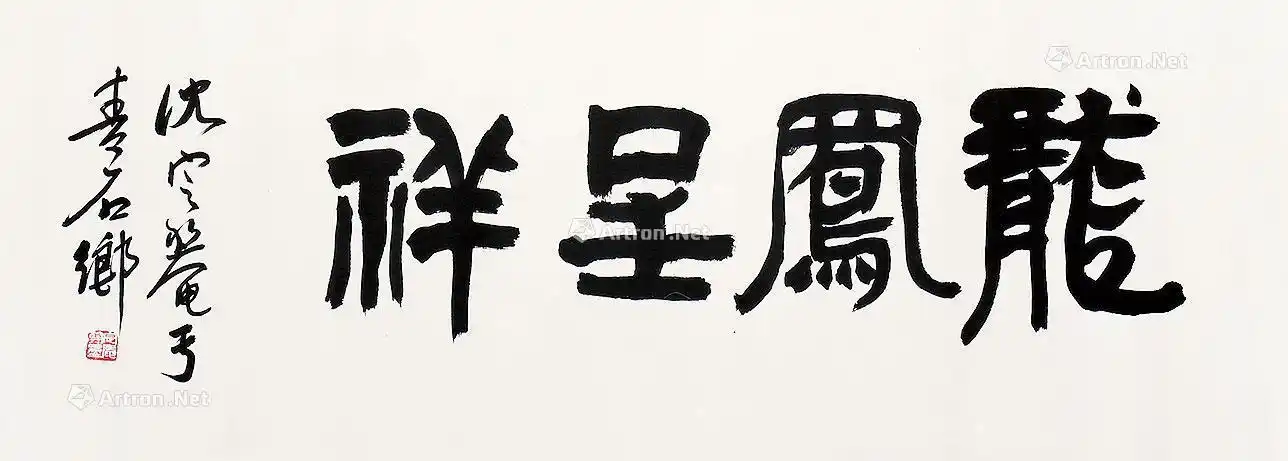 龍鳳呈祥
沈定菴于
石鄉
Artron.Net
Artron.Net
Artron.Net